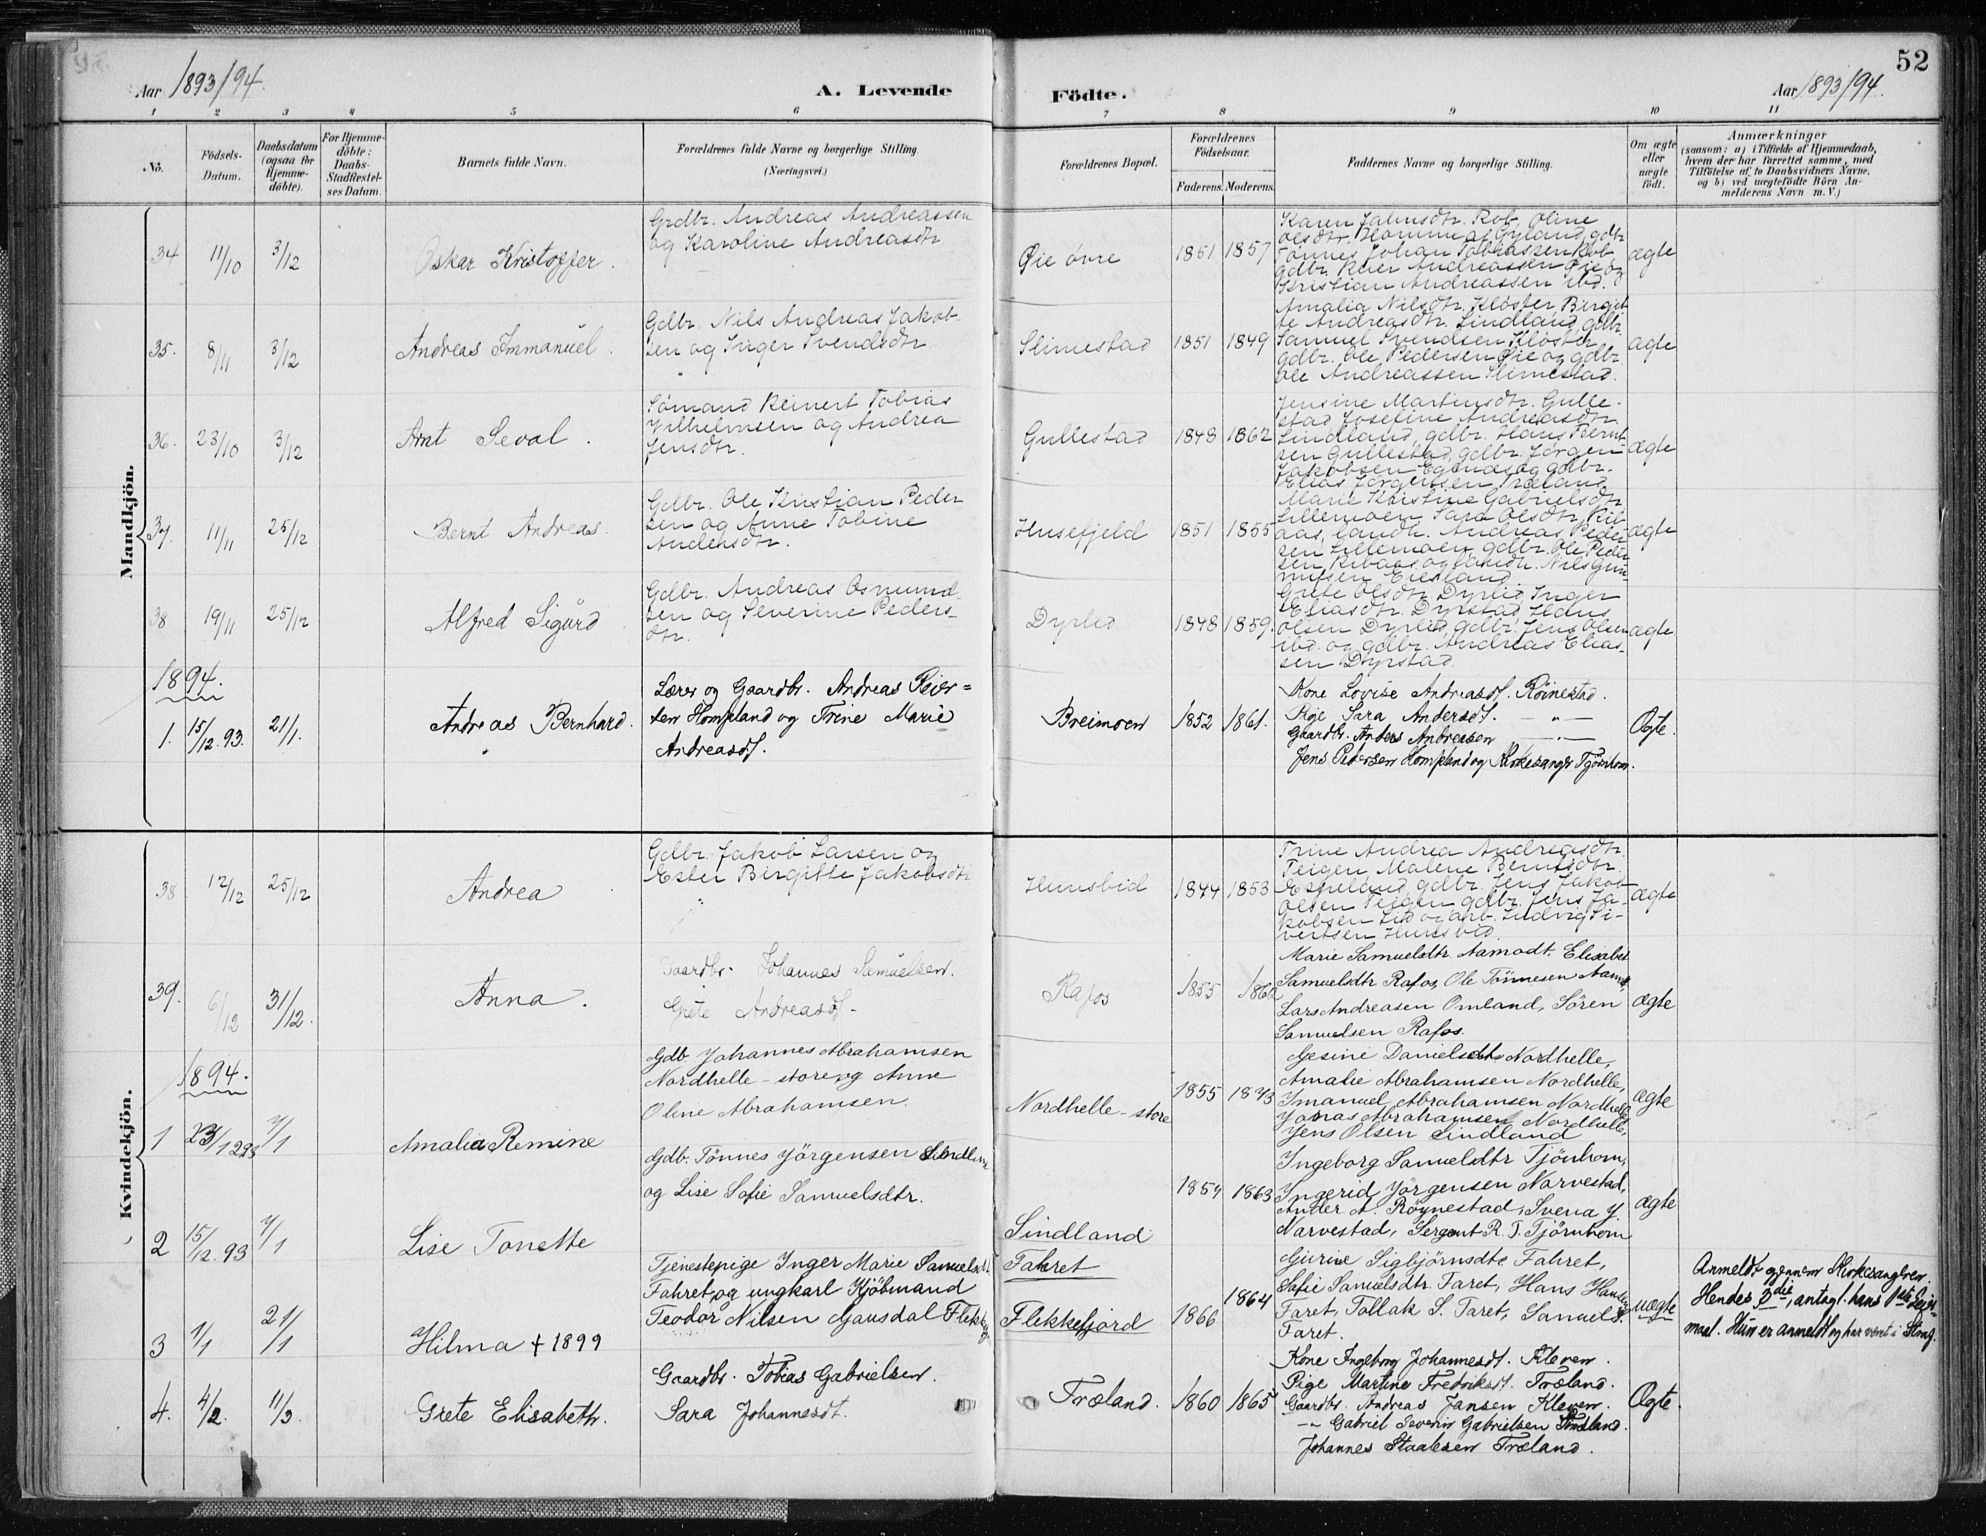 52
Aar 1893/94.
A. Levende
Födte.
Aar 1893/94.
1 2 3 4 5 6 7 8 9 10 11
No.
Födsels-
Datum.
Daabsdatum
(ogsaa for
Hjemme-
döbte).
For Hjemme-
döbte:
Daabs-
Stadfæstel-
ses Datum.
Barnets fulde Navn.
Forældrenes fulde Navne og borgerlige Stilling.
(Næringsvei.)
Forældrenes Bopæl.
Forældrenes
Födselsaar.
Faderens. Moderens.
Faddernes Navne og borgerlige Stilling.
Om ægte
eller
uægte
födt.
Anmærkninger
(saasom: a) i Tilfælde af Hjemmedaab,
hvem der har forrettet samme, med
Tilföielse af to Daabsvidners Navne,
og b) ved uægtefödte Börn An-
melderens Navn m. V.)
Mandkjön.
34 11/10 3/12
Oskar Kristoffer.
Grdbr. Andreas Andreassen
og Karoline Andreasdtr
Øie övre
1851 1857
Karen Jahnsdtr. Rob, Oline
olsdtr. Homme af Gyland, gdbr
Tønnes Johan Tobiassen Rob
gdbr. Reier Andreassen Øie og
Kristian Andreassen ibd.
ægte
35. 8/11 3/12
Andreas Immanuel.
Gdbr. Nils Andreas Jakob-
sen og Inger Svendsdtr
Slimestad
1851 1849
Amalia Nilsdtr. Kløster, Birgit-
te Andreasdtr. Lindland, gdbr.
Samuel Svendsen Kløster
gdbr. Ole Pedersen Øie og gdbr.
Ole Andreassen Slimestad.
ægte
36. 23/10 3/12
Arnt Seval.
Sømand Reinert Tobias
Vilhelmsen og Andrea
Jensdtr.
Gullestad
1848 1862
Jensine Martinsdtr. Gulle-
stad Josefine Andreasdtr.
Lindland, gdbr. Hans Bernt-
sen Gullestad, gdbr. Jørgen
Jakobsen Egenæs og gdbr.
Elias Jørgensen Træland
ægte
37. 11/11 25/12
Bernt Andreas.
Gdbr. Ole Kristian Peder
sen og Anne Tobine
Andersdtr.
Husefjeld
1851 1855
Marie Kristine Gabrielsdtr
Lillemoen Sara Olsdtr. Rib-
aas, landh. Andreas Peder-
sen Lillemoen gdbr. Ole Peder
sen Ribaas og landh. Nils Gun
nufsen Eiesland
ægte
38 19/11 25/12
Alfred Sigurd
Gdbr. Andreas Osmund-
sen og Severine Peders-
dtr.
Dyrlid
1848 1859.
Grete Olsdtr. Dyrlid, Inger
Eliasdtr. Dyrstad, Hans
Olsen Dyrlid, gdbr. Jens Olsen
ibd. og gdbr. Andreas Elias-
sen Dyrstad.
ægte
1894.
1. 15/12.93. 21/1.
Andreas Bernhard.
Lærer og Gaardbr. Andreas Peder=
sen Hompland og Trine Marie
Andreasdt.
Breimoen
1852 1861.
Kone Lovise Andreasdt. Röinestad.
Pige Sara Andersdt. — „ —
Gaardbr. Anders Andreassen — „ —
Jens Pedersen Hompland og Kirkesanger Tjönhom.
Ægte.
Kvindekjön.
38 12/12 25/12
Andrea
Gdbr. Jakob Larsen og
Ester Birgitte Jakobsdtr
Hunsbid
1844 1853
Trine Andrea Andreasdtr
Teigen, Malene Berntsdtr.
Espeland, gdbr. Jens Jakob
Olsen Teigen gdbr. Jens Ja-
kobsen Lid og arb. Ludvig Si-
vertsen Hunsbid.
ægte
39. 6/12 31/12.
Anna.
Gaardbr. Johannes Samuelsen.
Grete Andreasdt.
Rafos
1855 1862
Marie Samuelsdtr. Aamodt. Elisabet
Samuelsdtr Rafos, Ole Tönnesen Aamot,
Lars Andreasen Omland, Sören
Samuelsen Rafos.
ægte
1894.
1 23/1293 7/1
Amalia Remine
Gdb. Johannes Abrahamsen
Nordhelle-store og Anne
Oline Abrahamsen.
Nordhelle-store
1855 1873
Gesine Danielsdtr Nordhelle,
Amalie Abrahamsen Nordhelle,
Imanuel Abrahamsen Nordhelle
Jonas Abrahamsen Nordhelle,
Jens Olsen Lindland
ægte
2 15/12.93 7/1
Lise Tonette
Gdb. Tönnes Jörgensen Lindland
og Lise Sofie Samuelsdtr.
Lindland
1854 1863
Ingeborg Samuelsdtr Tjönhom,
Ingerid Jörgensen Narvestad,
Ander A. Röynestad, Svena J.
Narvestad, Sergeant R. T. Tjörnhom
ægte
3 1/1 21/1
Hilma † 1899
Tjenestepige Inger Marie Samuelsdt.
Fahret, og ungkarl Kjöbmand
Teodor Nilsen Gausdal Flekkefj
Fahret
Flekkefjord
1866 1864
Gjurine Sigbjörnsdtr Fahret,
Sofie Samuelsdtr. Faret, Hans Hansen
Faret, Tollak S. Faret, Samuel S.
Faret.
uægte
Anmeldt gjennem Kirkesangeren.
Hendes 2det, antagl. hans 1ste Leier-
maal. Hun er anmeldt og har været i Straf.
4. 4/2. 11/3.
Grete Elisabeth.
Gaardbr. Tobias Gabrielsen.
Sara Johannesdt.
Træland.
1860 1865
Kone Ingeborg Johannesdt. Kleven.
Pige Martine Fredriksdt. Træland.
Gaardbr. Andreas Jansen Kleven.
—„— Gabriel Severin Gabrielsen Træland.
Johannes Staalesen Træland.
Ægte.